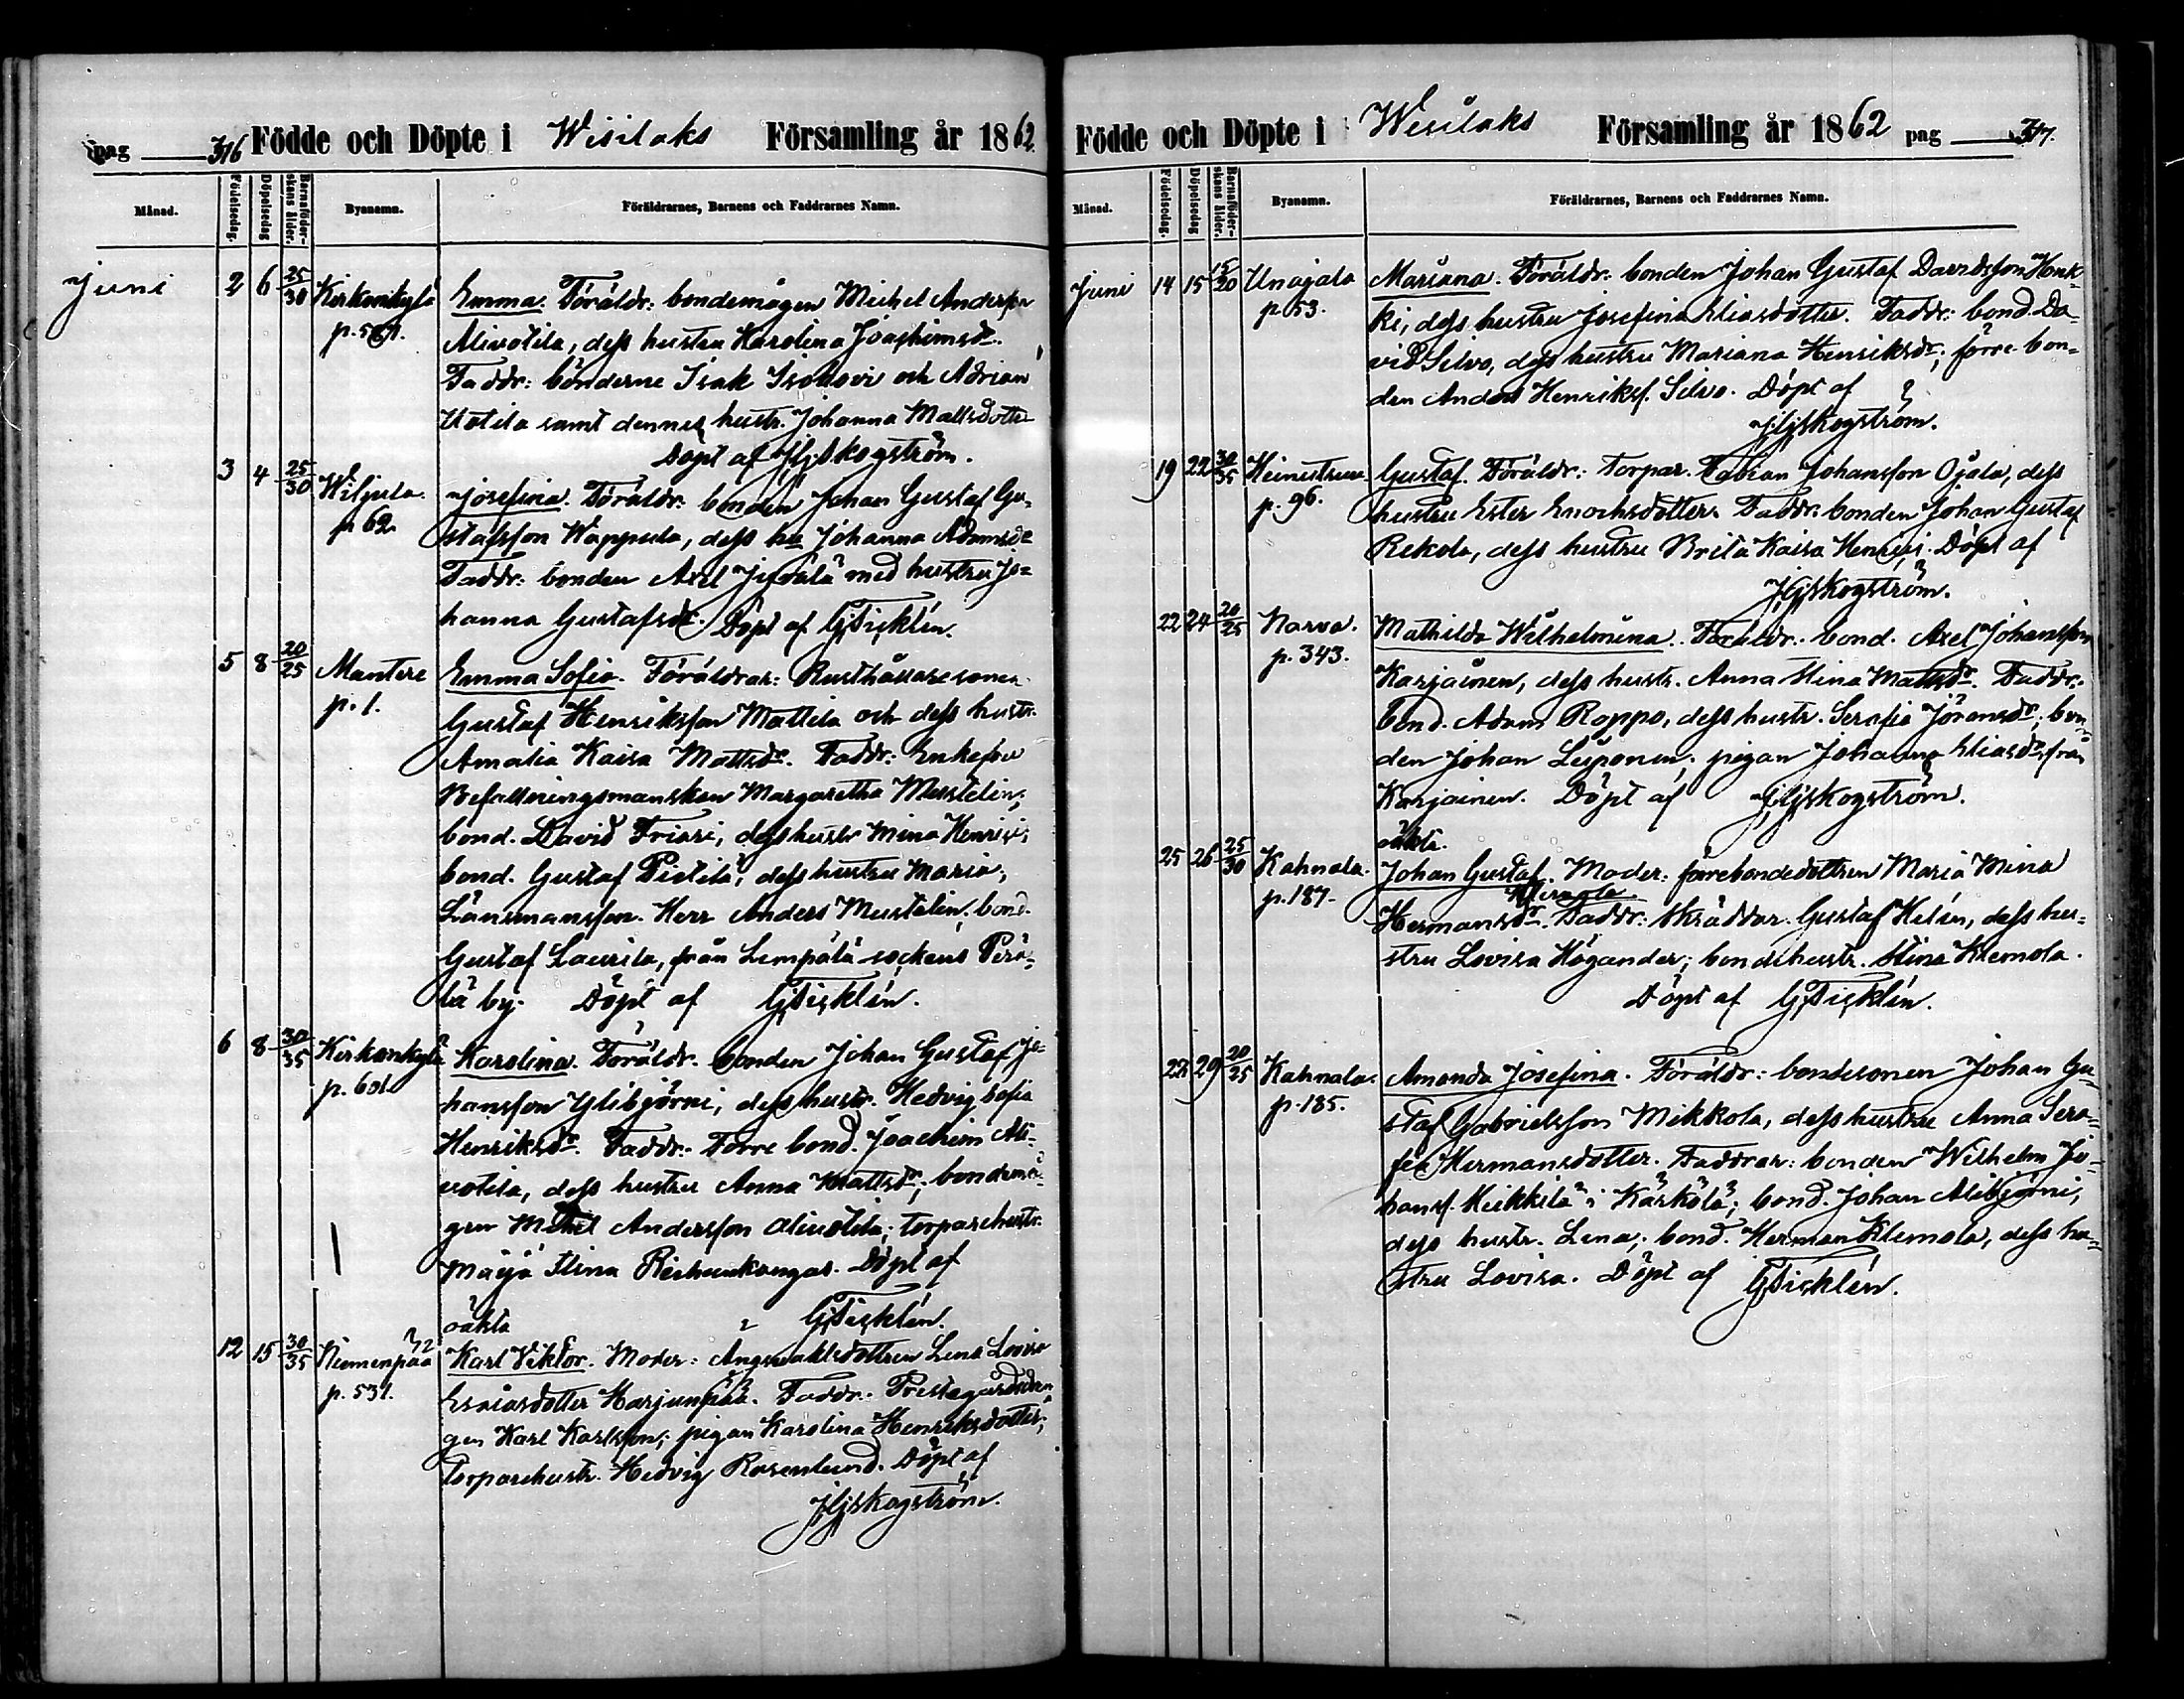 pag 316 Födde och Döpte i Wesilaks Församling år 1862.
Månad. Födelsedag. Döpelsedag Barnaföderskans ålder. Byanamn. Föräldrarnes, Barnens och Faddrarnes Namn.
Juni 2 6 25/30 Kirkonkylä Emma. Föräldr: bondemågen Michel Andersson
p. 561. Aliuotila, dess hustru Karolina Joachimsdr.
Faddr: bönderne Isak Isohovi och Adrian
Uotila samt dennes hustr. Johanna Mattsdotter
Döpt af JHjSkogström.
3 4 25/30 Hiljula. Josefina. Föräldr: bonden Johan Gustaf Gu-
p 62 stafsson Wappula, dess hu Johanna Adamsdr
Faddr: bonden Axel Jyrälä med hustru Jo-
hanna Gustafsdr. Döpt af GTicklén.
5 8 20/25 Mantere Emma Sofia. Föräldrar: Rusthållaresonen
p. 1. Gustaf Henriksson Mattila och dess hustr.
Amalia Kaisa Mattsdr. Faddr: Enkefru
Befallningsmanskan Margaretha Mustelin;
bond. David Friari, dess hustr Mina Henrici;
bond. Gustaf Pietilä, dess hustru Maria,
Länsmansson. Herr Anders Mustelin. bond.
Gustaf Laurila, från Lempälä sockens Perä-
lä by. Döpt af GTicklén.
6 8 30/35 Kirkonkylä Karolina. Föräldr. bonden Johan Gustaf Jo-
p. 601 hansson Ylibjörni, dess hustr. Hedvig Sofia
Henriksdr. Faddr. Förre bond. Joachim Ali-
uotila, dess hustru Anna Mattsdr; bondemå-
gen Michel Andersson Aliuotila; torparehustr.
Maija Stina Reihunkangas. Döpt af
oäkta GTicklén.
12 15 30/35 Niemenpää Karl Viktor. Moder: Lena Lovisa
p. 531. Esaiasdotter Harjunpää. Faddr: Prestgårdsdrän-
gen Karl Karlsson; pigan Karolina Henriksdotter;
Torparehustr. Hedvig Rosenlund. Döpt af
JHjSkogström.
Födde och Döpte i Wesilaks Församling år 1862 pag 317.
Månad. Födelsedag. Döpelsedag Barnaföderskans ålder. Byanamn. Föräldrarnes, Barnens och Faddrarnes Namn.
Juni 14 15 15/20 Unajala Mariana. Föräldr: bonden Johan Gustaf Davidsson Honk-
p 53. ki, dess hustru Josefina Eliasdotter. Faddr: bond. Da-
vid Silvo, dess hustru Mariana Henriksdr; förre bon-
den Anders Henrikss. Silvo. Döpt af
JHjSkogström.
19 22 30/35 Heinustrun Gustaf. Föräldr: Torpar. Fabian Johansson Ojala, dess
p. 96. hustru Ester Enochsdotter. Faddr: bonden Johan Gustaf
Rekola, dess hustru Brita Kaisa Henrici. Döpt af
JHjSkogström.
22 24 20/25 Narva. Mathilda Wilhelmina. Föräldr. bond. Axel Johansson
p. 343. Karjainen, dess hustr. Anna Stina Mattsdr. Faddr:
bond. Adam Roppo, dess hustr. Serafia Jöransdr; bon-
den Johan Leiponen; pigan Johanna Eliasdr från
Karjainen. Döpt af JHjSkogström.
oäkta.
25 26 25/30 Kahnala. Johan Gustaf. Moder: förrebondedottren Maria Mina
p. 187.
Hermansdr. Faddr: Skräddar. Gustaf Helin, dess hu-
stru Lovisa Högander; bondehustr. Stina Klemola.
Döpt af GTicklén.
29 20/25 Kahnala. Amanda Josefina. Föräldr: bondesonen Johan Gu-
p. 185. staf Gabrielsson Mikkola, dess hustru Anna Sera-
fia Hermansdotter. Faddrar: bonden Wilhelm Jo-
hanss. Heikkilä i Kärkölä; bond. Johan Alibjörni,
dess hustr. Lena; bond. Herman Klemola, dess hu-
stru Lovisa. Döpt af GTicklén.